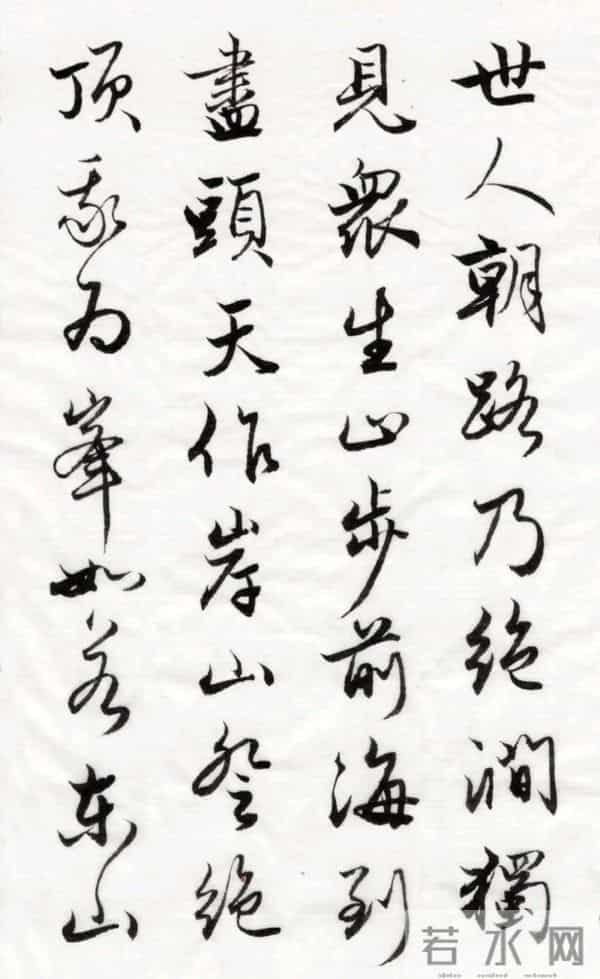 世人朝路乃絶澗獨
見衆生止步前海到
盡頭天作岸山登絶
頂我为峯如若東山
若水网